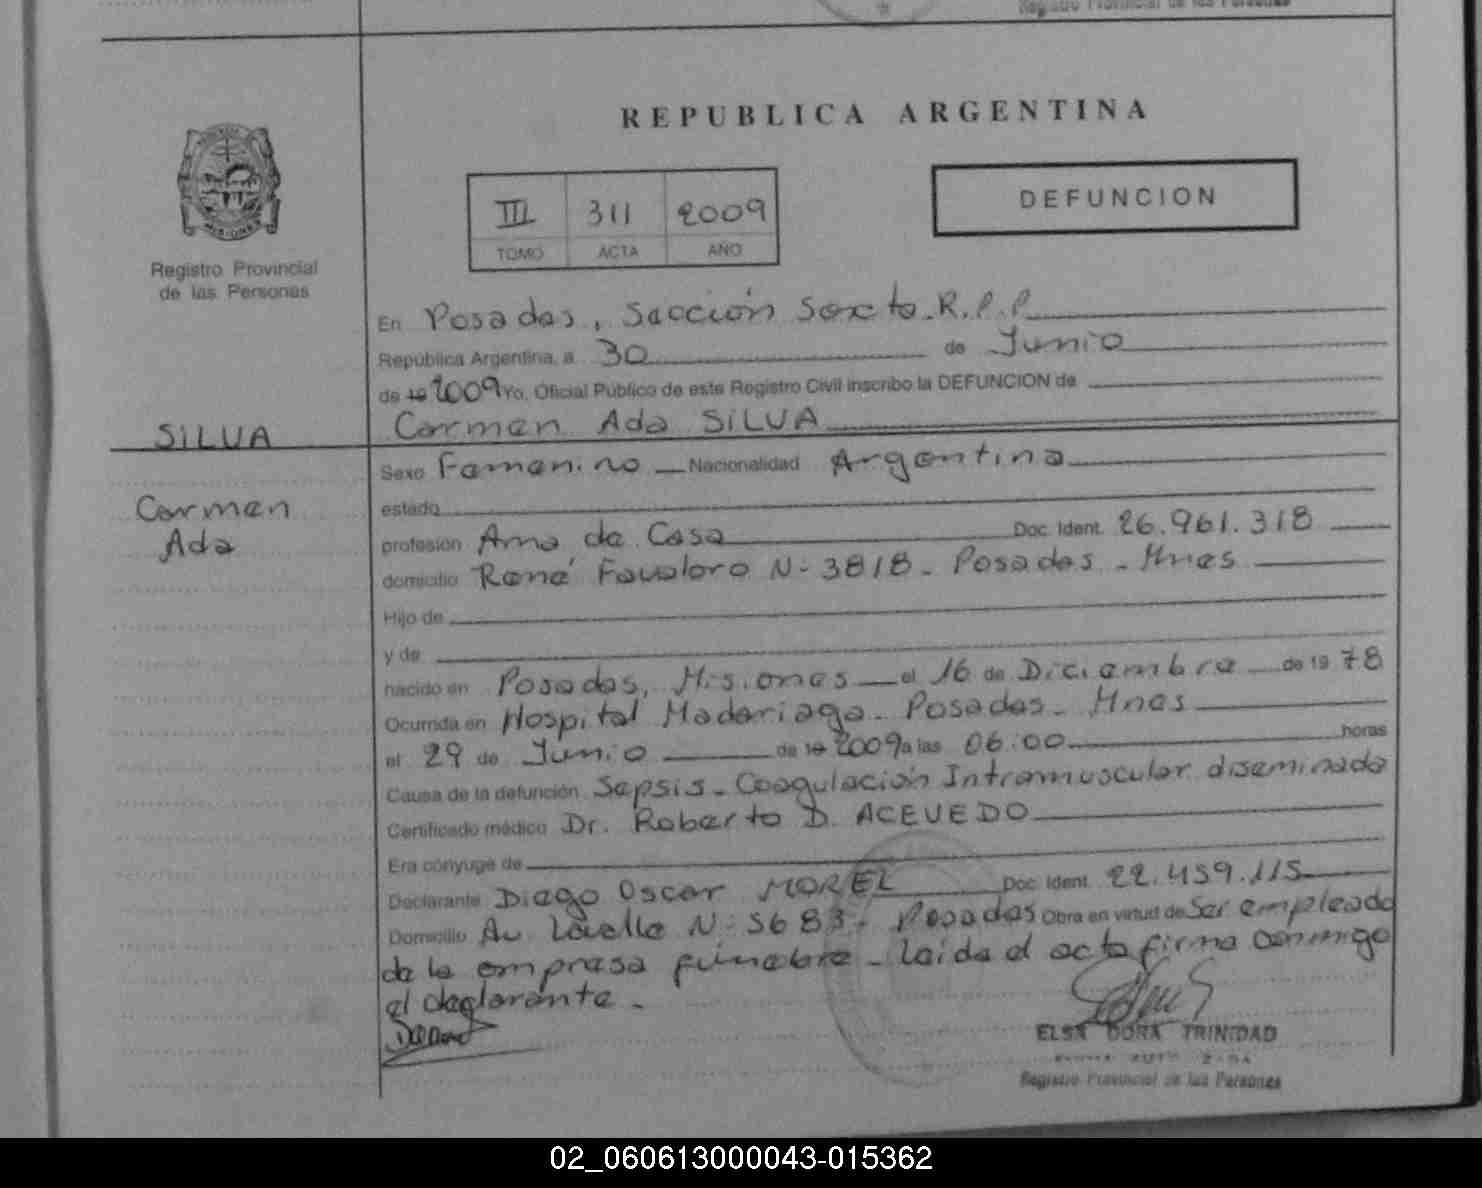 Registro Provincial de las Personas
REPUBLICA ARGENTINA
III 311 2009
TOMO ACTA AÑO
DEFUNCION
MISIONES
Registro Provincial
de las Personas
En Posadas, Sección Sexta R.P.P
República Argentina, a 30 de Junio
de 19 2009 Yo, Oficial Público de este Registro Civil inscribo la DEFUNCION de
Carmen Ada SILVA
SILVA
Carmen
Ada
Sexo Femenino Nacionalidad Argentina
estado
profesión Ama de Casa Doc. Ident. 26.961.318
domicilio René Favaloro N- 3818 - Posadas - Mnes
Hijo de
y de
nacido en Posadas, Misiones el 16 de Diciembre de 19 78
Ocurrida en Hospital Madariaga - Posadas - Mnes
el 29 de Junio de 19 2009 a las 06:00 horas
Causa de la defunción Sepsis - Coagulación Intramuscular diseminada
Certificado médico Dr. Roberto D. ACEVEDO
Era cónyuge de
Declarante Diego Oscar MOREL Doc. Ident. 22.459.115
Domicilio Av. Lavalle N- 5683 - Posadas Obra en virtud de Ser empleado
de la empresa fúnebre - Leída el acta firma conmigo
el declarante -
ELSA DORA TRINIDAD
Registro Provincial de las Personas
02_060613000043-015362